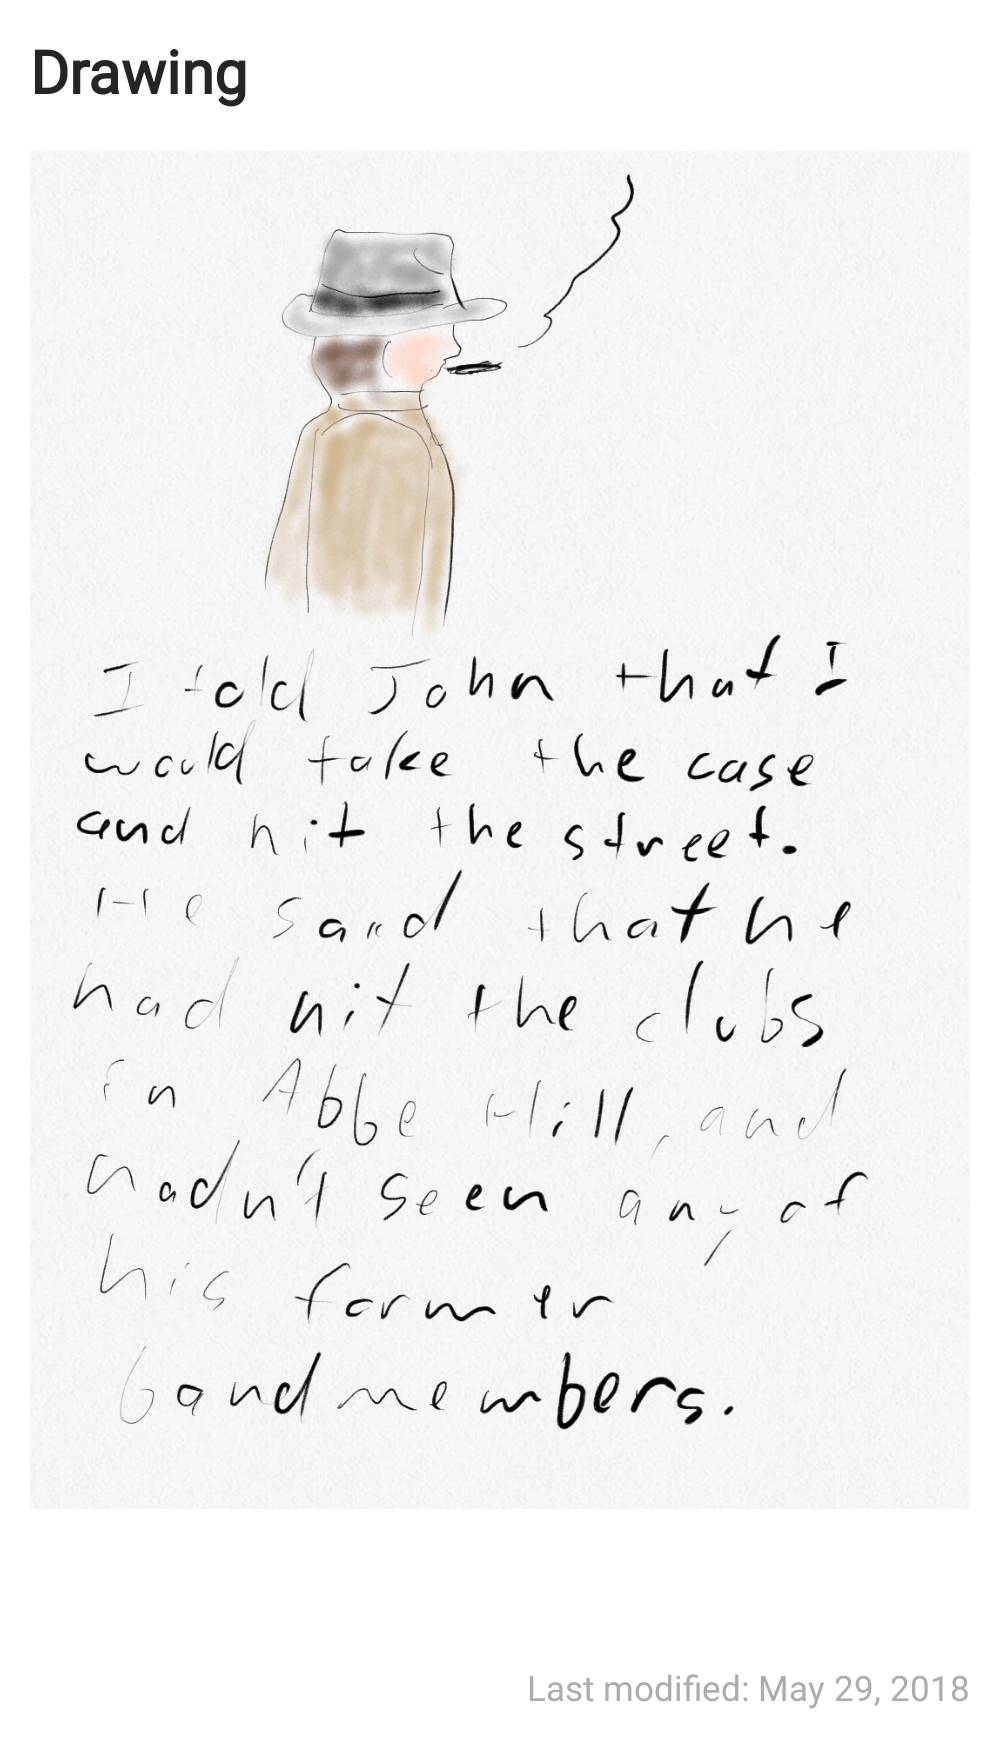 Drawing
I told John that I
would take the case
and hit the street.
He said that he
had hit the clubs
in Abbe Hill, and
hadn't seen any of
his former
bandmembers.
Last modified: May 29, 2018